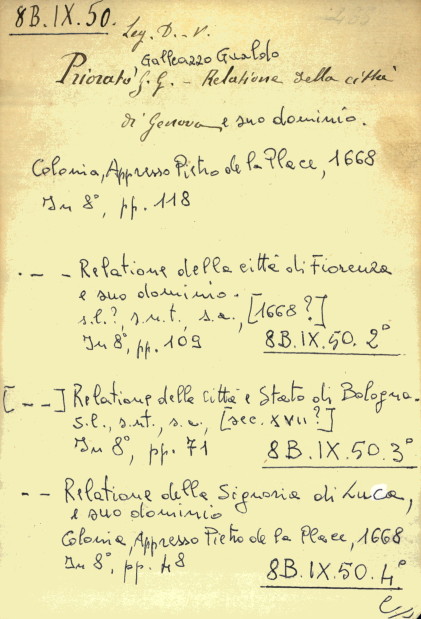 8B.IX.50.
Leg. D. V.
Galleazzo Gualdo
Priorato G.G. - Relatione della città
di Genova e suo dominio.
Colonia, Appresso Pietro de la Place, 1668
In 8°, pp. 118
. - - Relatione della città di Fiorenza
e suo dominio.
s.l.?, s.n.t., s.a., [1668?]
In 8°, pp. 109
8B.IX.50.2°
[- -] Relatione della Città e Stato di Bologna.
s.l., s.n.t., s.a., [sec. XVII?]
In 8°, pp. 71
8B.IX.50.3°
- - Relatione della Signoria di Luca,
e suo dominio
Colonia, Appresso Pietro de la Place, 1668
In 8°, pp. 48
8B.IX.50.4°